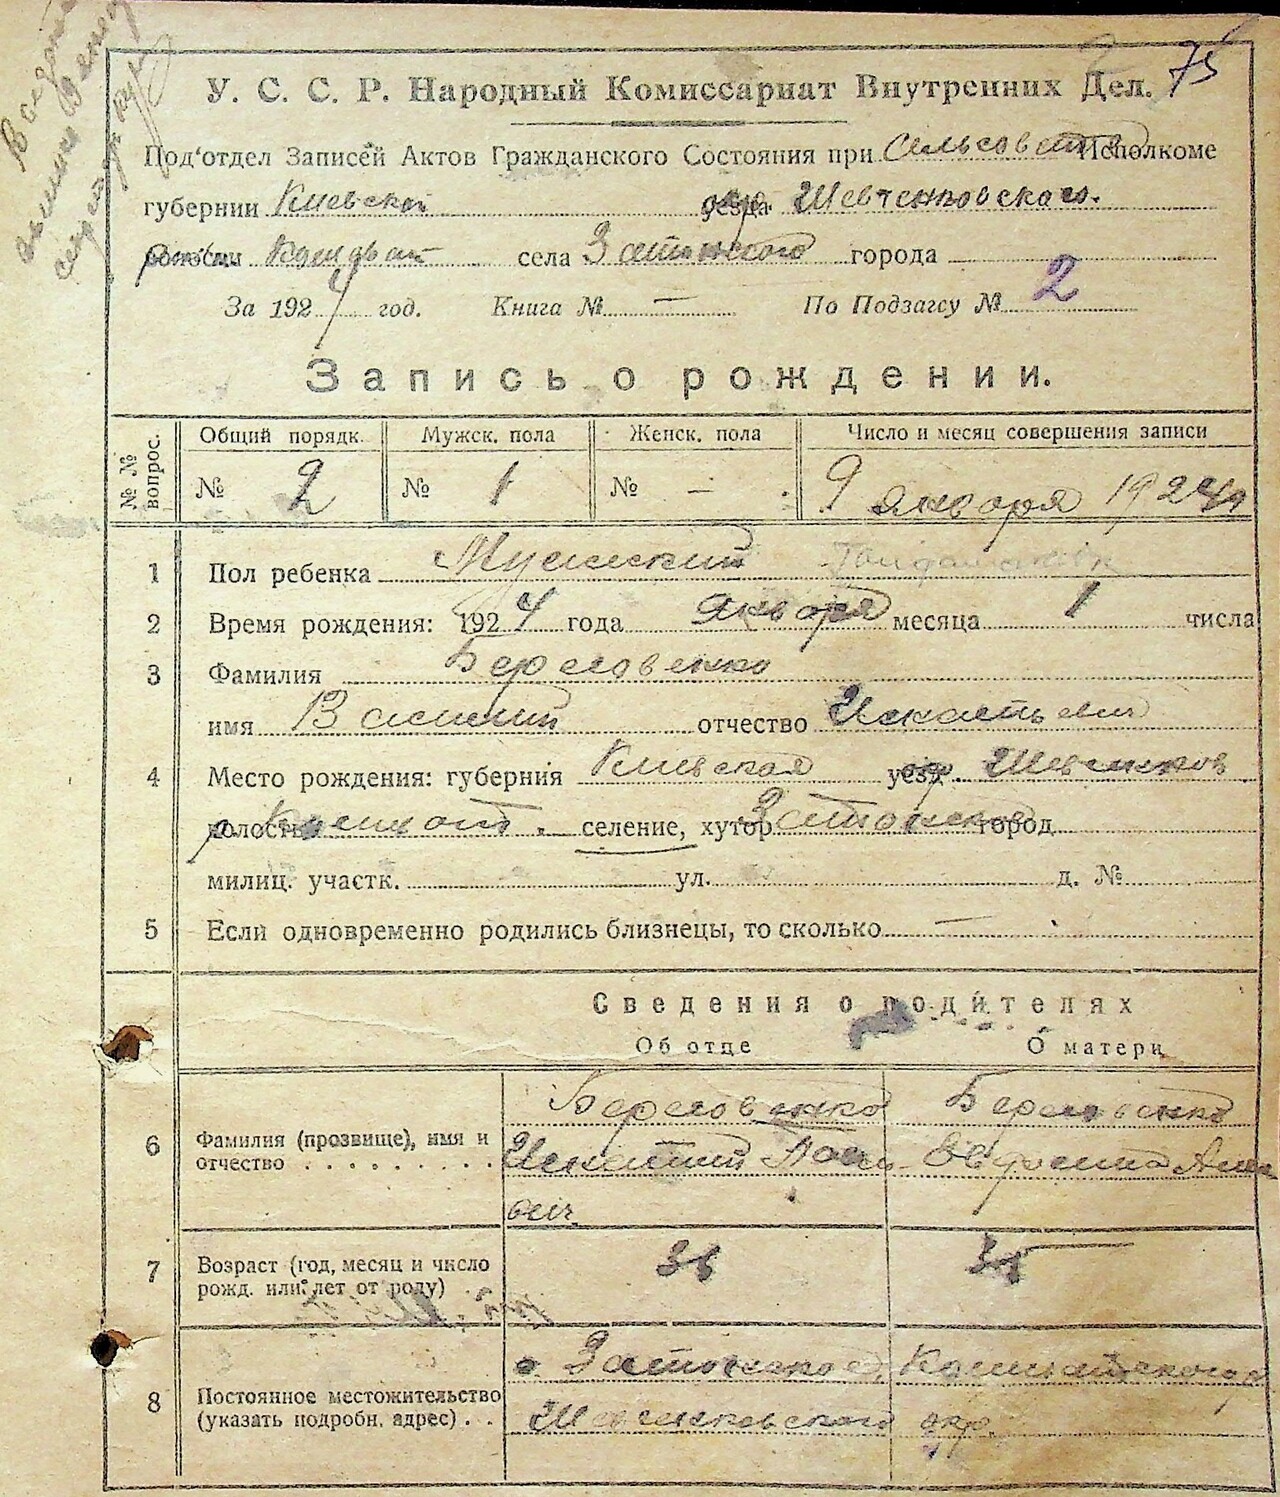 75
У. С. С. Р. Народный Комиссариат Внутренних Дел.
Под'отдел Записей Актов Гражданского Состояния при Сельсовете Исполкоме
губернии Киевской уезда окр. Шевченковского.
волости села Затонского города
За 1924 год. Книга № — По Подзагсу № 2
Запись о рождении.
№ № вопрос. Общий порядк. Мужск. пола Женск. пола Число и месяц совершения записи
№ 2 № 1 № — 9 января 1924
1 Пол ребенка Мужский
2 Время рождения: 1924 года Января месяца 1 числа
3 Фамилия Береговенко
имя Василий отчество Игнатьевич
4 Место рождения: губерния Киевская уезд окр. Шевченков
волость селение, хутор Затонское город
милиц. участк. ул. д. №
5 Если одновременно родились близнецы, то сколько —
Сведения о родителях
Об отце О матери
6 Фамилия (прозвище), имя и отчество Береговенко Игнатий вич Береговенко Евфросина
7 Возраст (год, месяц и число рожд. или лет от роду)
8 Постоянное местожительство (указать подробн. адрес) с. Затонское Шевченковского окр.